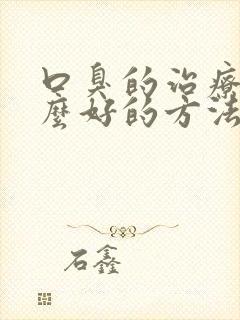 口臭的治療
麼好的方法
石鑫